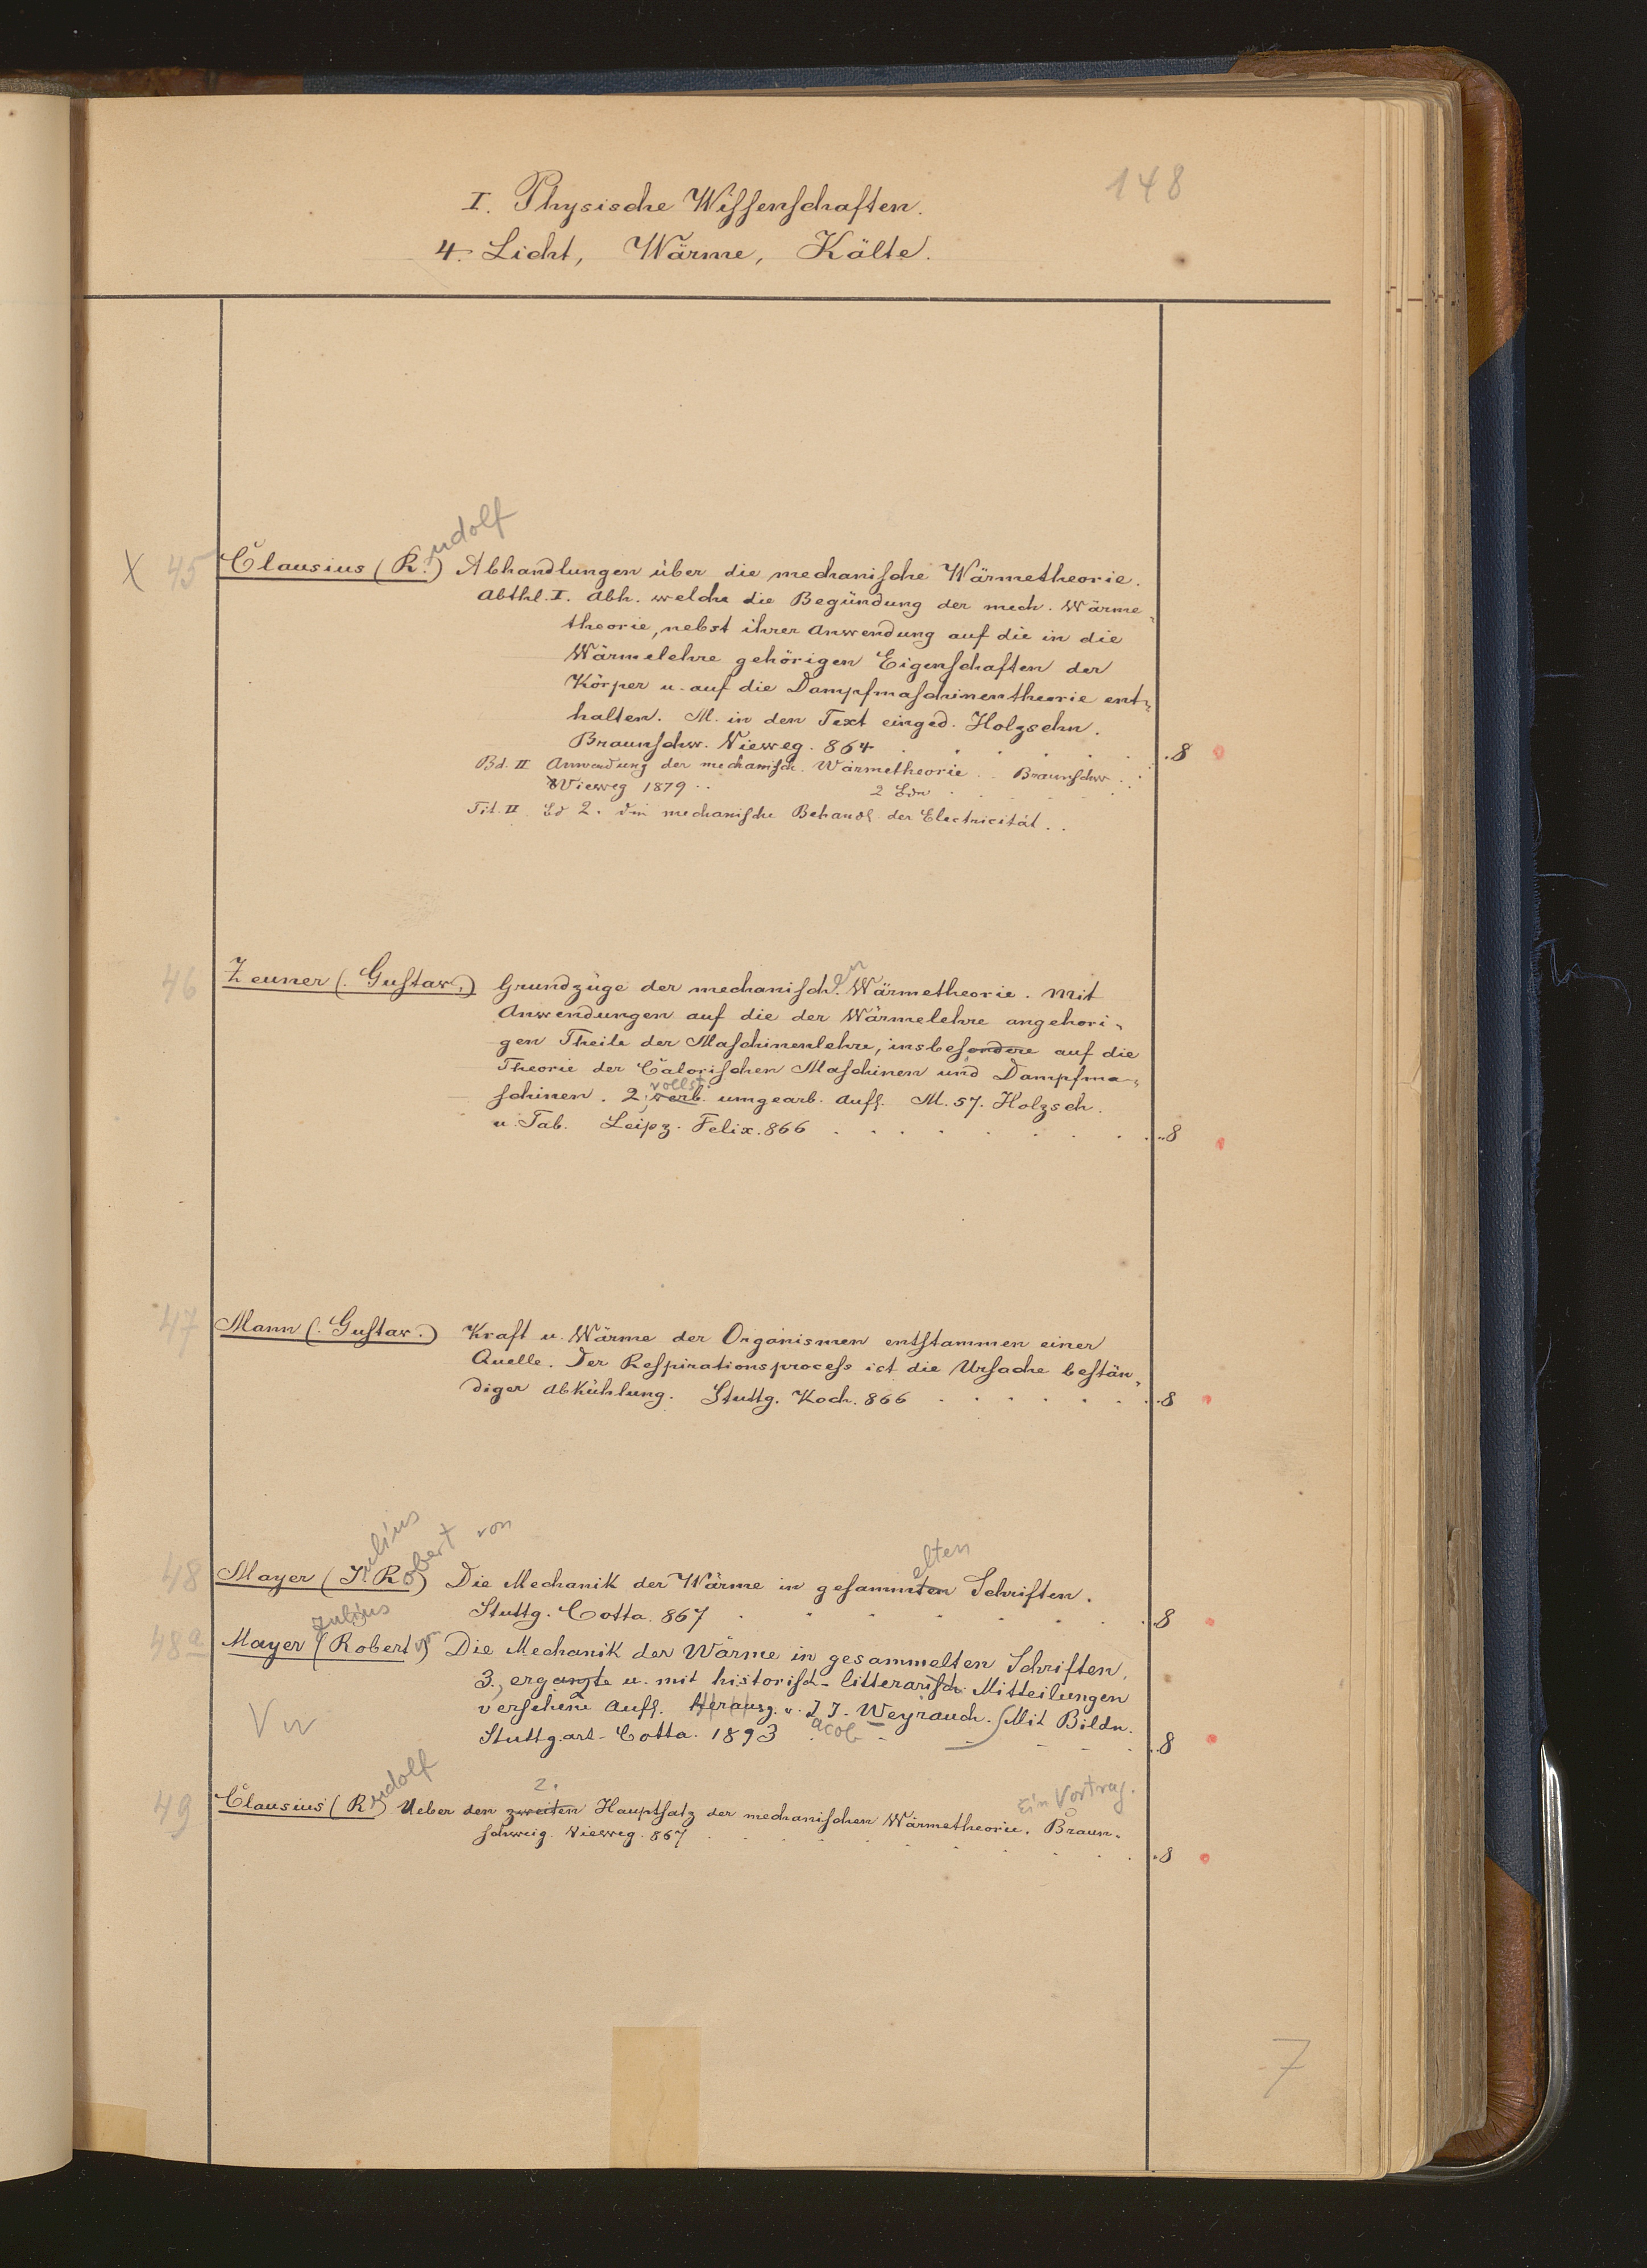 148
I. Physische Wissenschaften.
4. Licht, Wärme, Kälte.
udolf
X 45 Clausius (R.) Abhandlungen über die mechanische Wärmetheorie.
Abthl. I. Abh. welche die Begründung der mech. Wärme-
theorie, nebst ihrer Anwendung auf die in die
Wärmelehre gehörigen Eigenschaften der
Körper u. auf die Dampfmaschinentheorie ent-
halten. M. in den Text einged. Holzschn.
Braunschw. Vieweg. 864 . . . . . 8
Bd. II Anwendung der mechanisch. Wärmetheorie . . Braunschw. .
Vieweg 1879 . . 2 Edn . . . .
Tit. II Ed 2. Die mechanische Behandl. der Electricität . .
en
46 Zeuner (. Gustav.) Grundzüge der mechanisch. Wärmetheorie. Mit
Anwendungen auf die der Wärmelehre angehöri-
gen Theile der Maschinenlehre, insbesondere auf die
Theorie der Calorischen Maschinen und Dampfma-
vollst.
schinen. 2, verb. umgearb. Aufl. M. 57. Holzsch.
u. Tab. Leipz. Felix. 866 . . . . . . . 8
47 Mann (. Gustav.) Kraft u. Wärme der Organismen entstammen einer
Quelle. Der Respirationsprocess ist die Ursache bestän-
diger Abkühlung. Stuttg. Koch. 866 . . . . . . 8
ulius obert von elten
48 Mayer (J. R.) Die Mechanik der Wärme in gesammten Schriften.
Stuttg. Cotta. 867 . . . . . . . 8
Julius
48a Mayer (Robert von) Die Mechanik der Wärme in gesammelten Schriften,
3., ergänzte u. mit historisch-litterarisch. Mitteilungen
versehene Aufl. Herausg. v. J. J. Weyrauch. Mit Bildn.
acob
Stuttgart. Cotta. 1893 . . . . . 8
udolf 2. Ein Vortrag.
49 Clausius (R.) Ueber den zweiten Hauptsatz der mechanischen Wärmetheorie. Braun-
schweig. Vieweg. 867 . . . . . . . 8
7